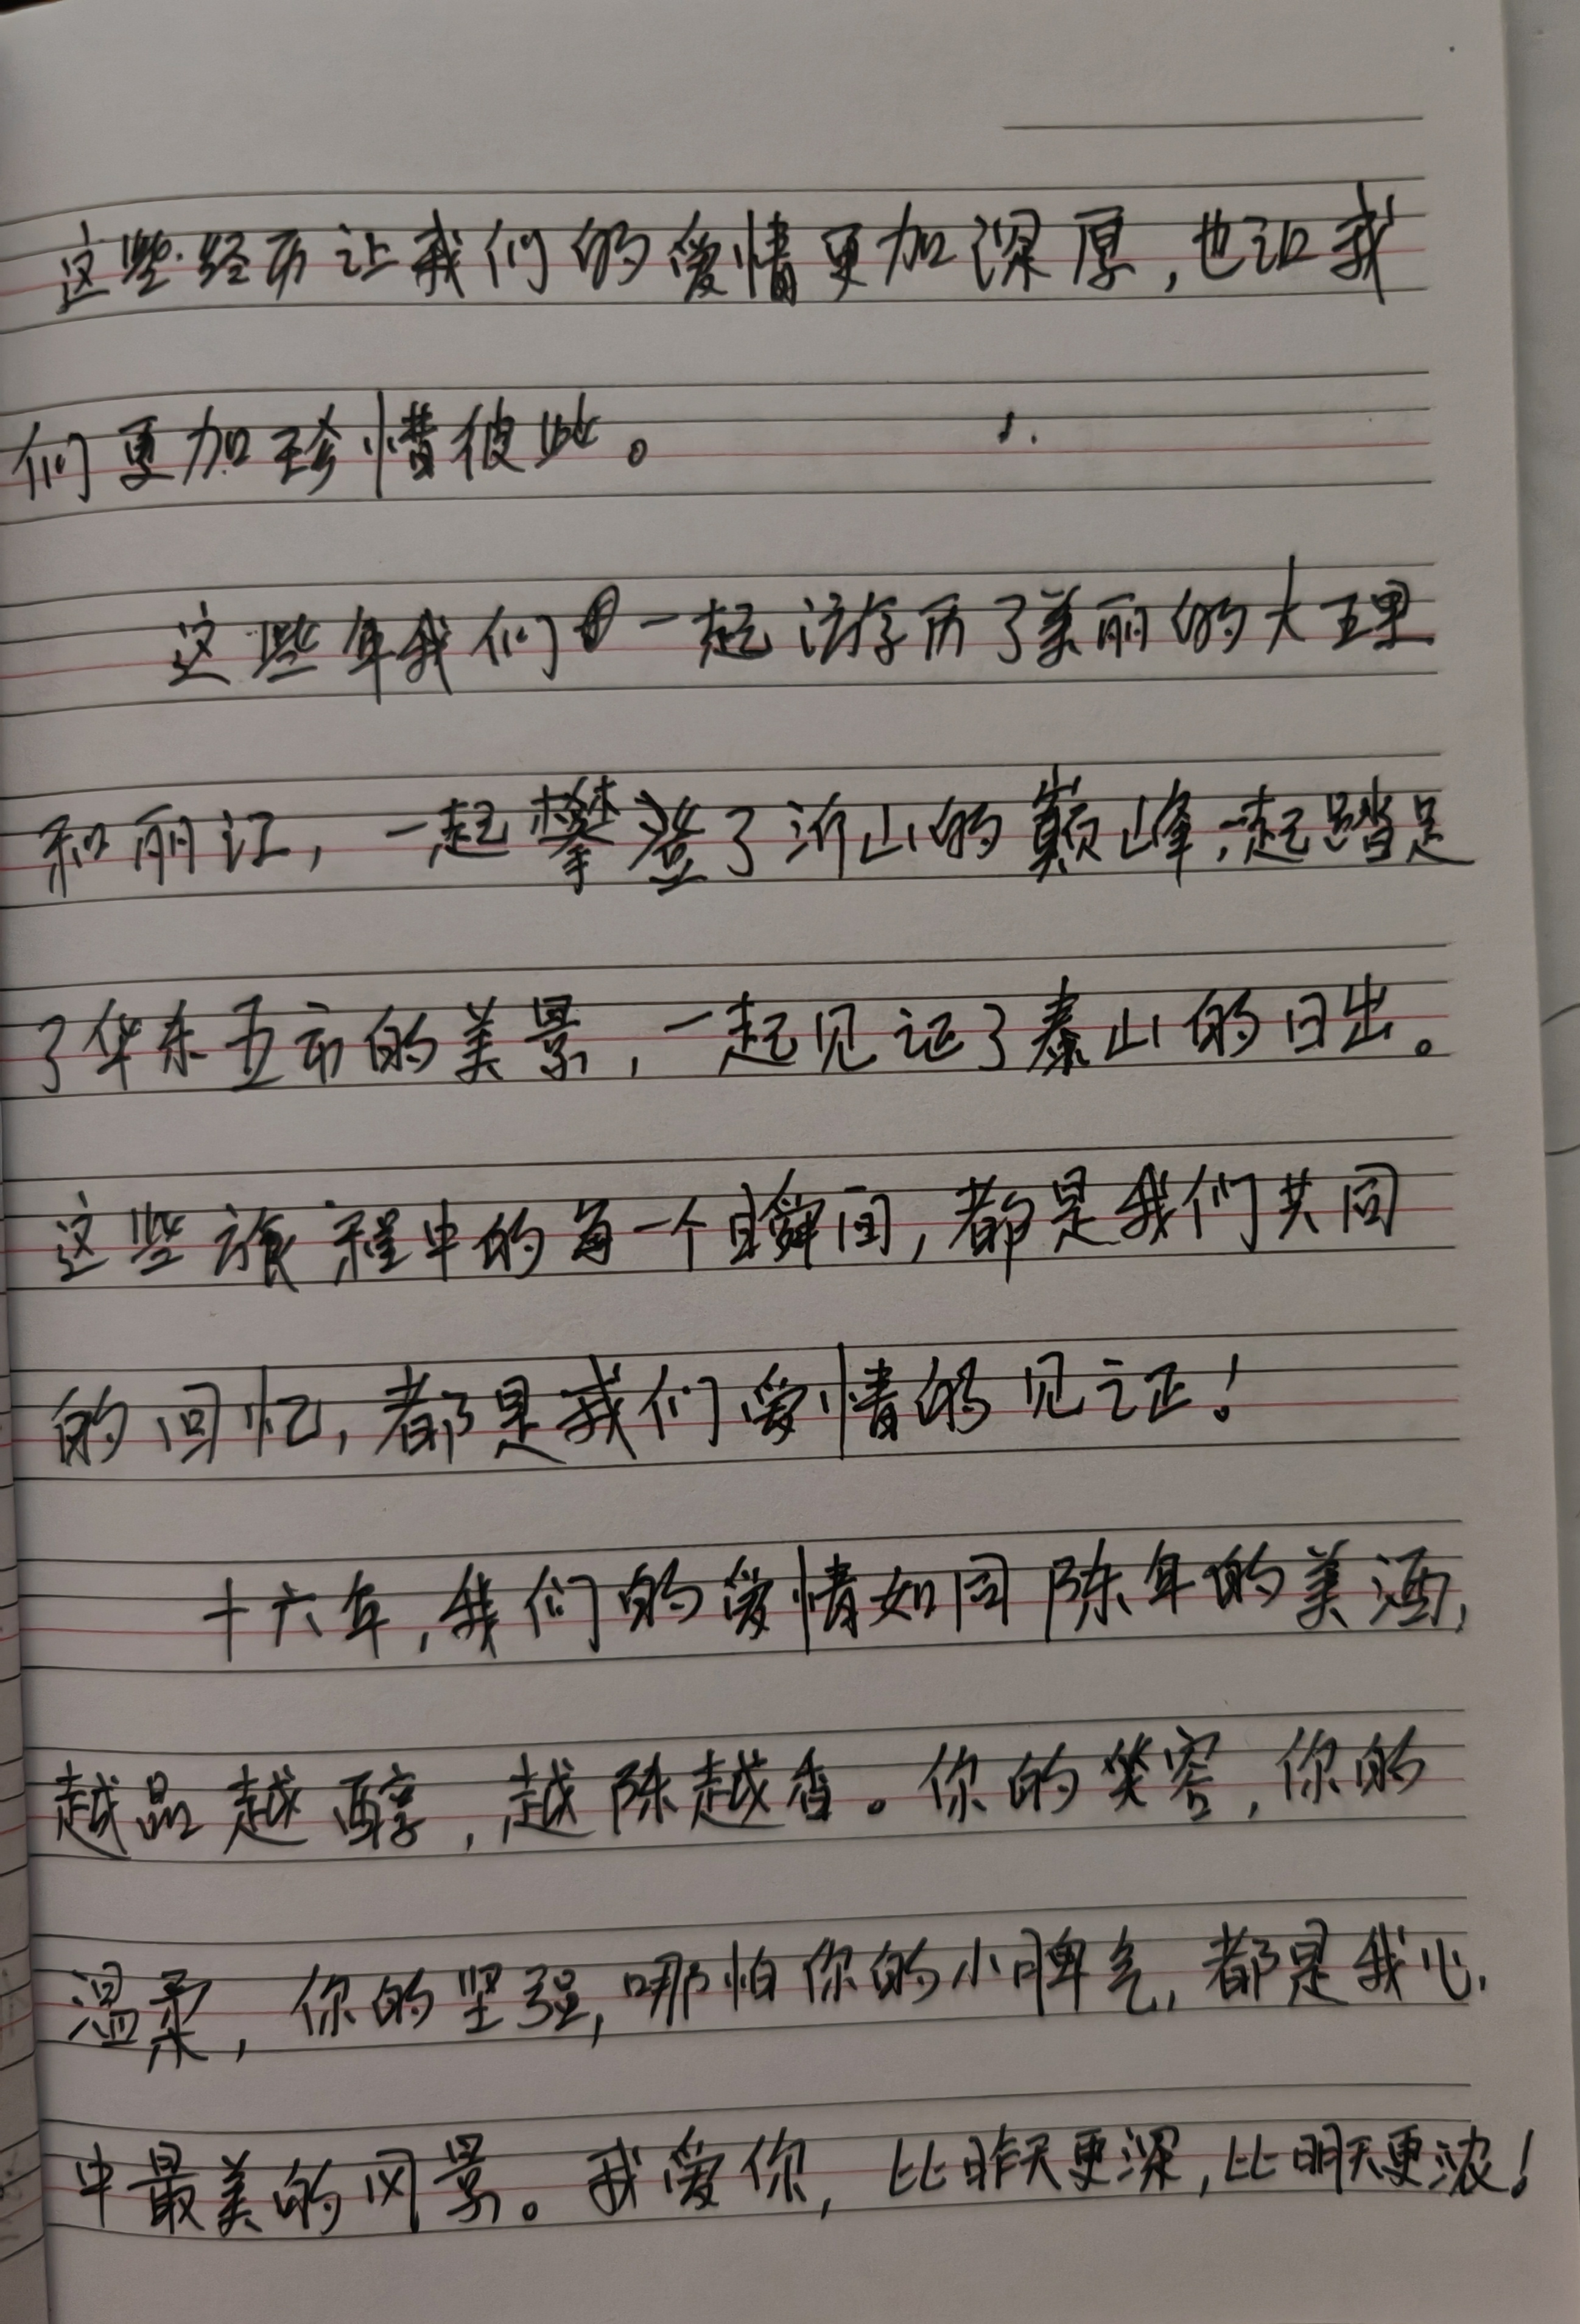 这些经历让我们的爱情更加深厚，也让我
们更加珍惜彼此。
这些年我们一起游历了美丽的大理
和丽江，一起攀登了沂山的巅峰，一起踏足
了华东五市的美景，一起见证了泰山的日出。
这些旅程中的每一个瞬间，都是我们共同
的回忆，都是我们爱情的见证！
十六年，我们的爱情如同陈年的美酒，
越品越醇，越陈越香。你的笑容，你的
温柔，你的坚强，哪怕你的小脾气，都是我心
中最美的风景。我爱你，比昨天更深，比明天更浓！